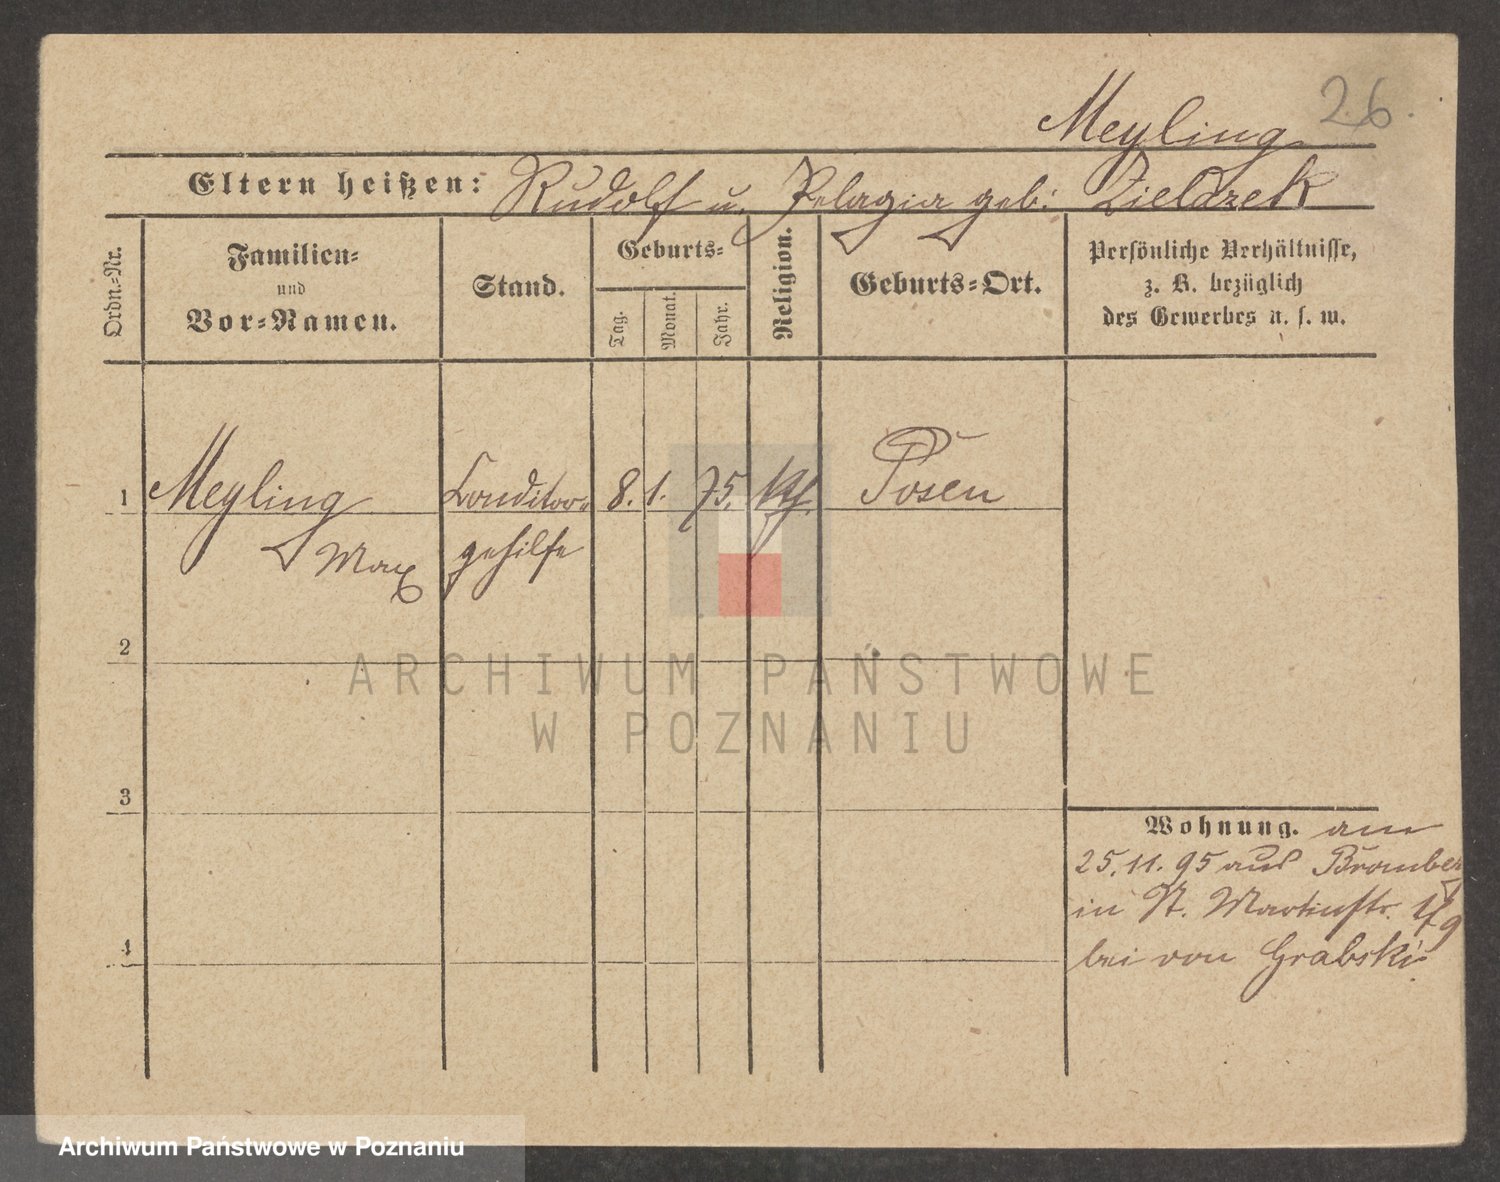 26.
Meyling
Eltern heißen: Rudolf u. Pelagia geb:
Ordn.-Nr.
Familien-
und
Vor-Namen.
Stand.
Geburts-
Tag.
Monat.
Jahr.
Religion.
Geburts-Ort.
Persönliche Verhältnisse,
z. B. bezüglich
des Gewerbes u. s. w.
1 Meyling Conditor- 8. 1. 75. Kth. Posen
Max gehilfe
2
3
4
Wohnung. am
25.11.95 aus Bromberg
in St. Martinstr.
bei von Grabski.
ARCHIWUM PAŃSTWOWE
W POZNANIU
Archiwum Państwowe w Poznaniu